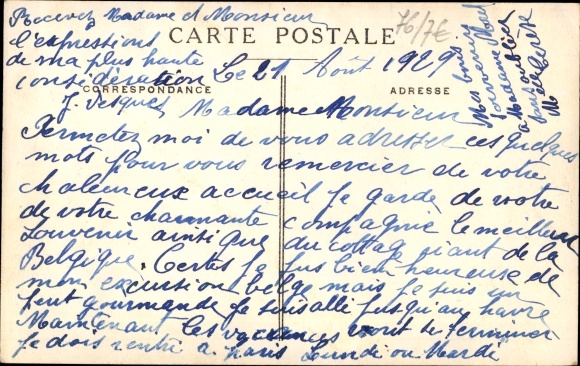 Recevez Madame et Monsieur
l'expressions
de ma plus haute
considération
CARTE POSTALE
CORRESPONDANCE
ADRESSE
Le 21 Août 1929
Madame Monsieur
Permetez moi de vous adresser ces quelques
mots pour vous remercier de votre
chaleureux accueil je garde de votre
de votre charmante compagnie le meilleur
souvenir ainsi que du cottage riant de la
Belgique. Certes je fus bien heureuse de
mon excursion belge mais je suis un
peut gourmande je suis allé jusqu'au havre
Maintenant les vacances vont se terminer
je dois rentré a paris Lundi ou Mardi
Mes bons
souvenirs
a Madame
76/7€